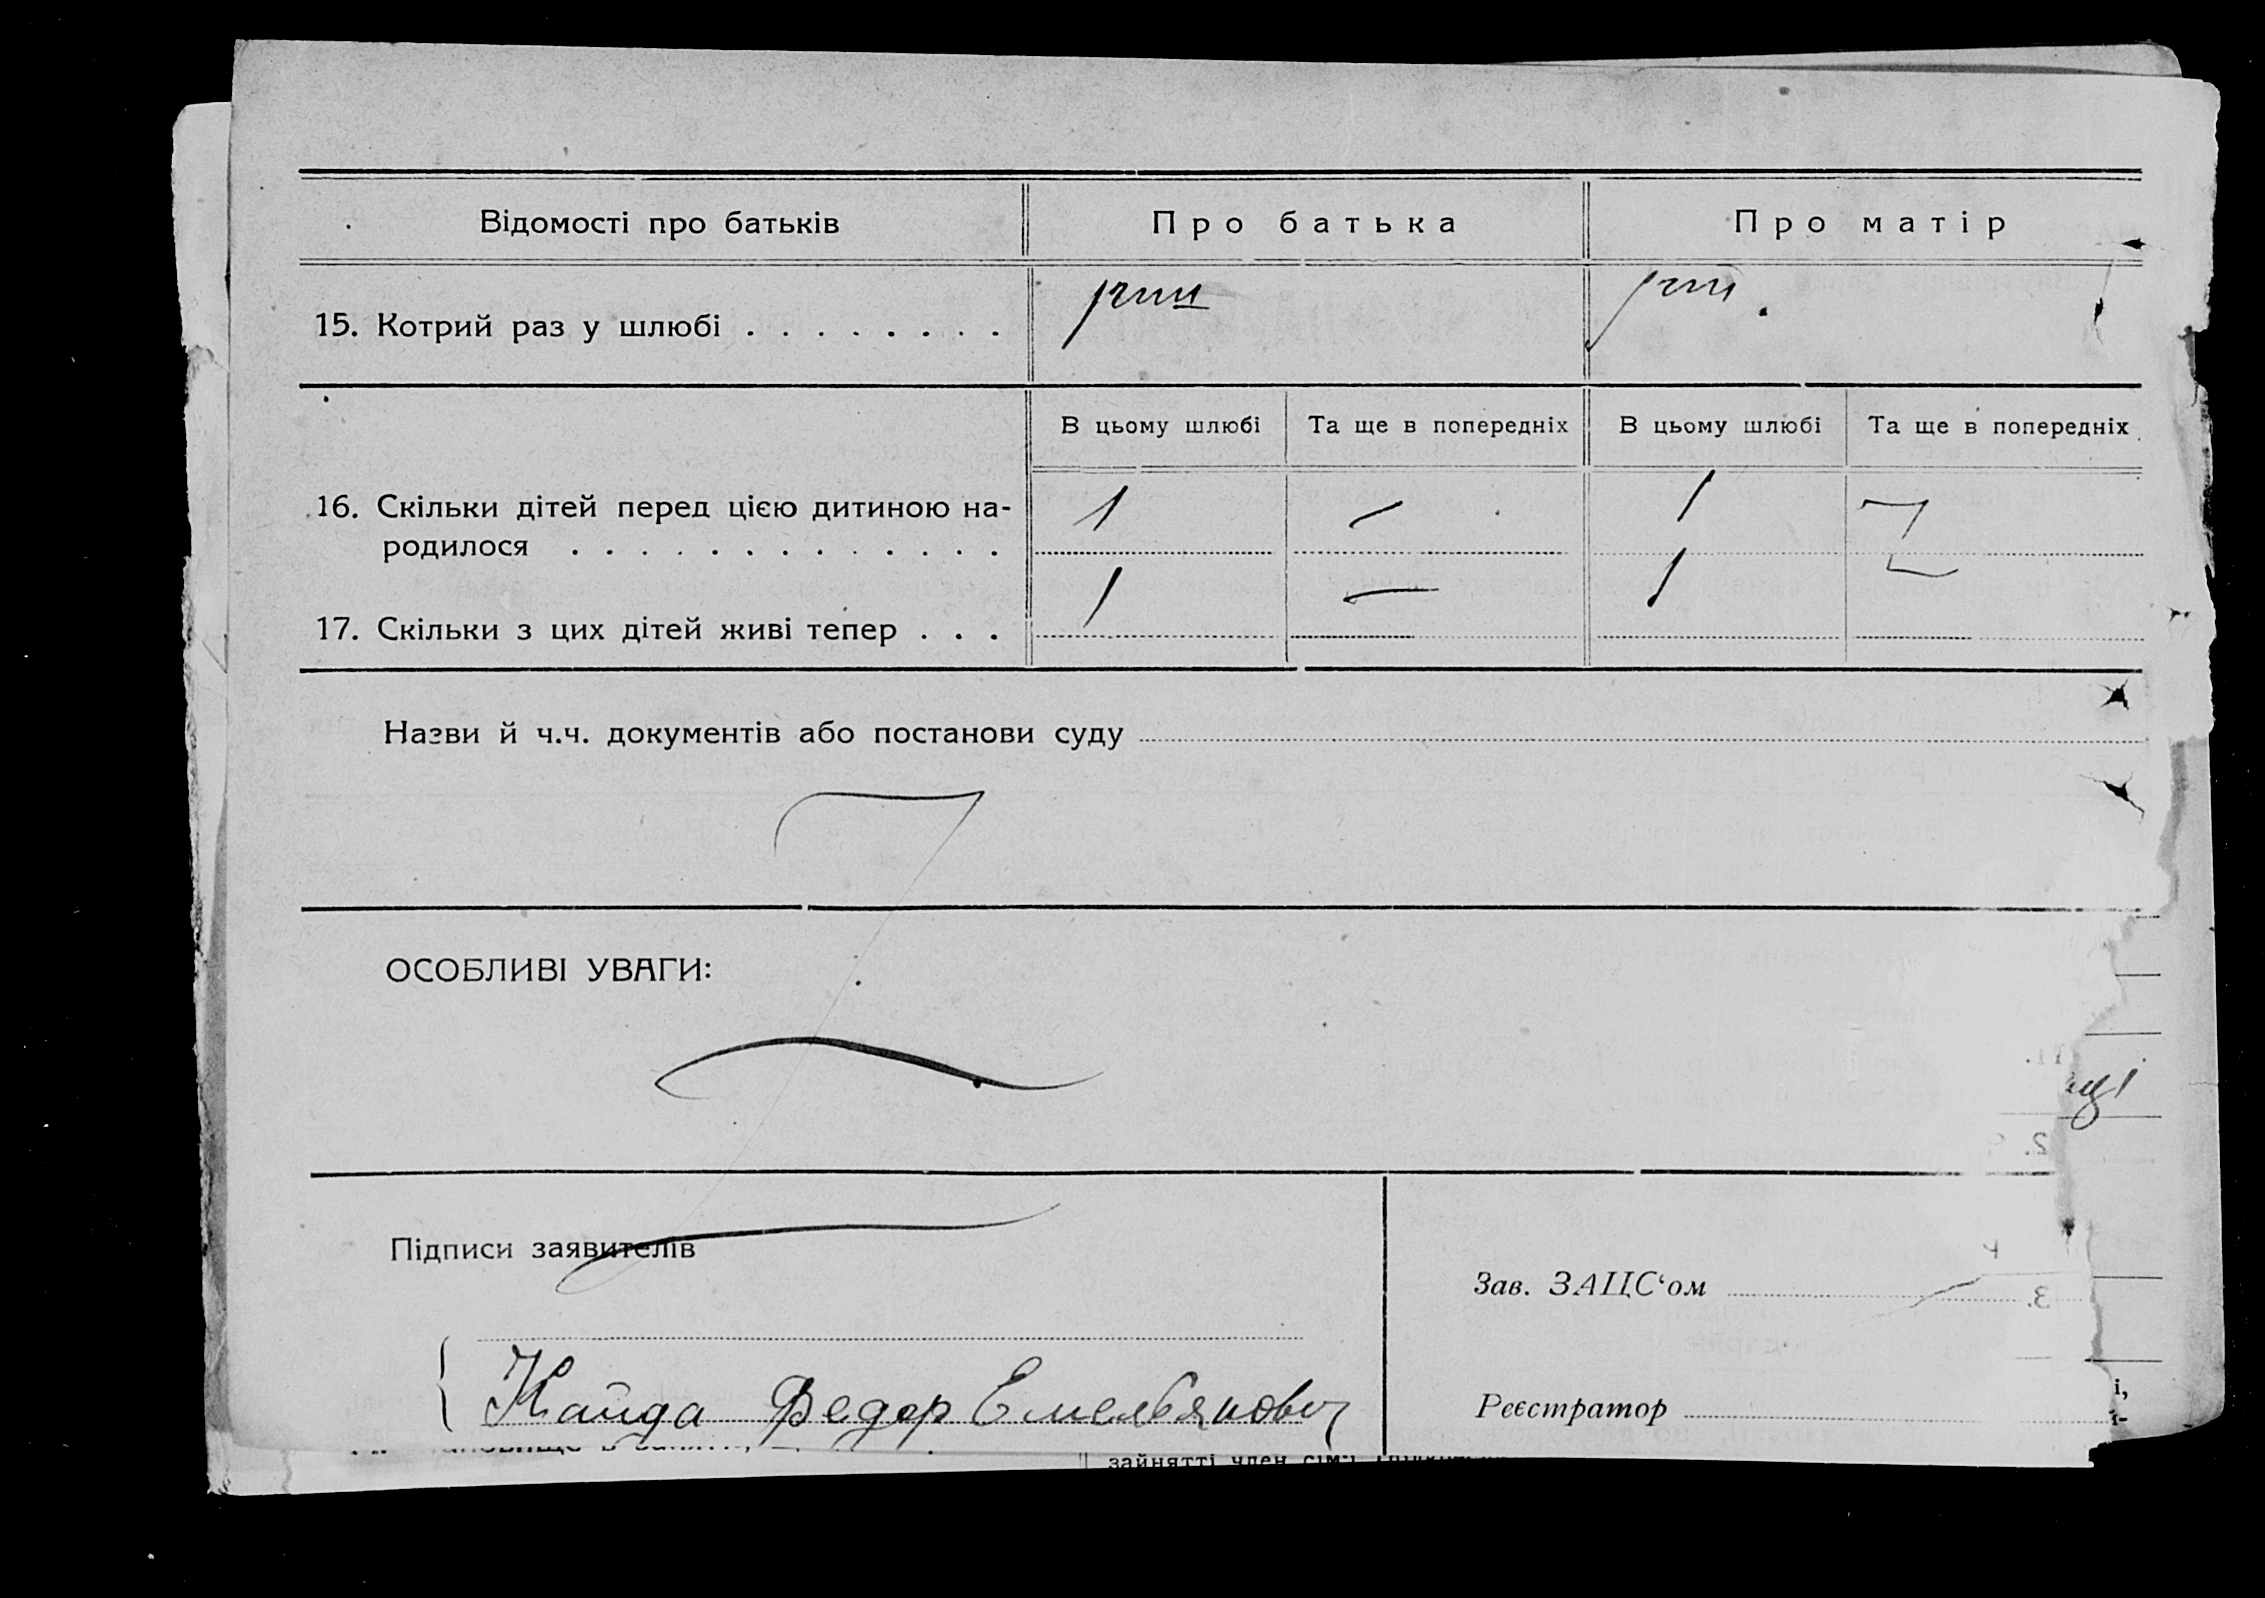 Відомості про батьків Про батька Про матір
15. Котрий раз у шлюбі . . . . . . . .
В цьому шлюбі Та ще в попередніх В цьому шлюбі Та ще в попередніх
16. Скільки дітей перед цією дитиною на-
1 — 1 —
родилося . . . . . . . . . . . . .
17. Скільки з цих дітей живі тепер . . . 1 — 1 —
Назви й ч.ч. документів або постанови суду
ОСОБЛИВІ УВАГИ:
Підписи заявителів
Зав. ЗАЦС‘ом
Реєстратор
Кайда Федор Емельянович
зайнятті член сім'ї